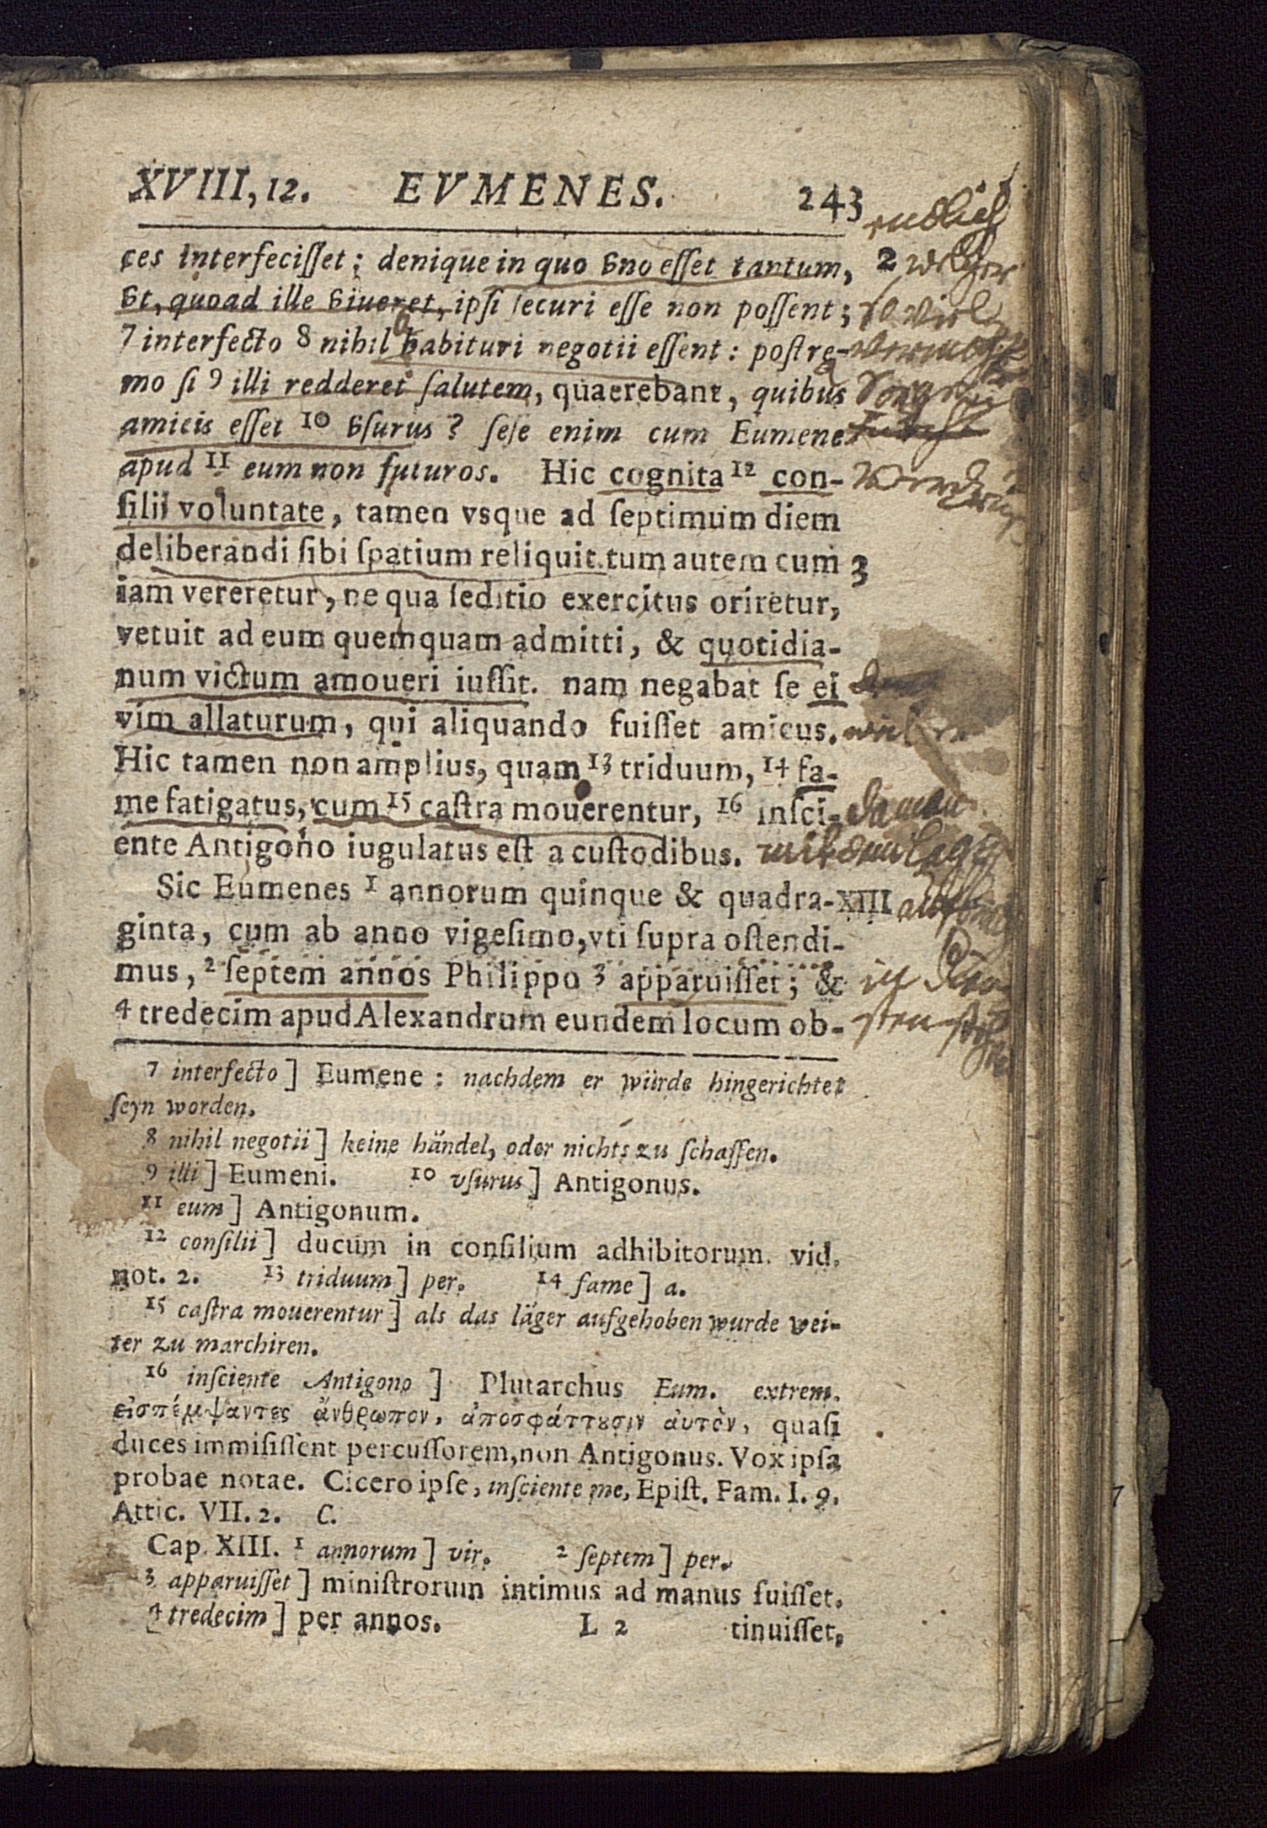 XVIII, 12. EVMENES. 243
ces interfeciſſet; denique in quo vno eſſet tantum, 2
vt, quoad ille viueret, ipſi ſecuri eſſe non poſſent;
7 interfecto 8 nihil habituri negotii eſſent: poſtre-
mo ſi 9 illi redderet ſalutem, quaerebant, quibus
amicis eſſet 10 vſurus? ſeſe enim cum Eumene
apud 11 eum non futuros. Hic cognita 12 con-
ſilii voluntate, tamen vsque ad ſeptimum diem
deliberandi ſibi ſpatium reliquit. tum autem cum 3
iam vereretur, ne qua ſeditio exercitus oriretur,
vetuit ad eum quemquam admitti, & quotidia-
num victum amoueri iuſſit. nam negabat ſe ei
vim allaturum, qui aliquando fuiſſet amicus.
Hic tamen non amplius, quam 13 triduum, 14 fa-
me fatigatus, cum 15 caſtra mouerentur, 16 inſci-
ente Antigono iugulatus eſt a cuſtodibus.
Sic Eumenes 1 annorum quinque & quadra- XIII
ginta, cum ab anno vigeſimo, vti ſupra oſtendi-
mus, 2 ſeptem annos Philippo 3 apparuiſſet; &
4 tredecim apud Alexandrum eundem locum ob-
endlich
so viel
da man
mit dem
7 interfecto] Eumene: nachdem er würde hingerichtet
ſeyn worden.
8 nihil negotii] keine händel, oder nichts zu ſchaffen.
9 illi] Eumeni. 10 vſurus] Antigonus.
11 eum] Antigonum.
12 conſilii] ducum in conſilium adhibitorum. vid.
not. 2. 13 triduum] per. 14 fame] a.
15 caſtra mouerentur] als das läger aufgehoben wurde wei-
ter zu marchiren.
16 inſciente Antigono] Plutarchus Eum. extrem.
εἰσπέμψαντες ἄνθρωπον, ἀποσφάττουσιν ἀυτὸν, quaſi
duces immiſiſſent percuſſorem, non Antigonus. Vox ipſa
probae notae. Cicero ipſe, inſciente me, Epiſt. Fam. I. 9.
Attic. VII. 2. C.
Cap. XIII. 1 annorum] vir. 2 ſeptem] per.
3 apparuiſſet] miniſtrorum intimus ad manus fuiſſet.
4 tredecim] per annos. L 2 tinuiſſet,